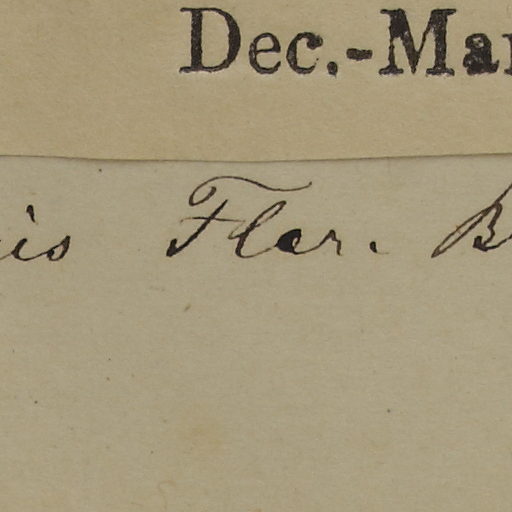 Dec.-Mar
is Flor. B